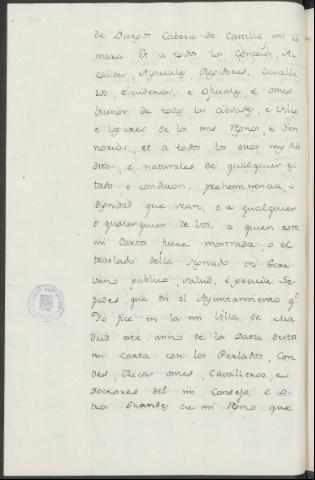 de Burgos Cabeza de Castilla mi Ca
mara. Et a todos los Concejos, Al
caldes, Alguaciles, Regidores, Cavalle
ros, Escuderos, e Oficiales, e omes
buenos de todas las Cibdades, e Villas
e logares de los mis Regnos, e Sen
norios, et a todos los otros mis Sub
ditos, e naturales de qualquier es
tado, o condicion, prehemmencia, o
dignidad que sean, o a qualquier
o qualesquier de vos, a quien esta
mi Carta fuere mostrada, o el
traslado della signado de Escri
vano publico, salud, e gracia. Se
pades, que en el Ayuntamiento q.e
Yo fice en la mi Villa de Ma
drid este anno de la Data desta
mi carta con los Perlados, Con
des, Ricos omes, Cavalleros, e
Doctores del mi Consejo, e o
tros Grandes de mi Regno que